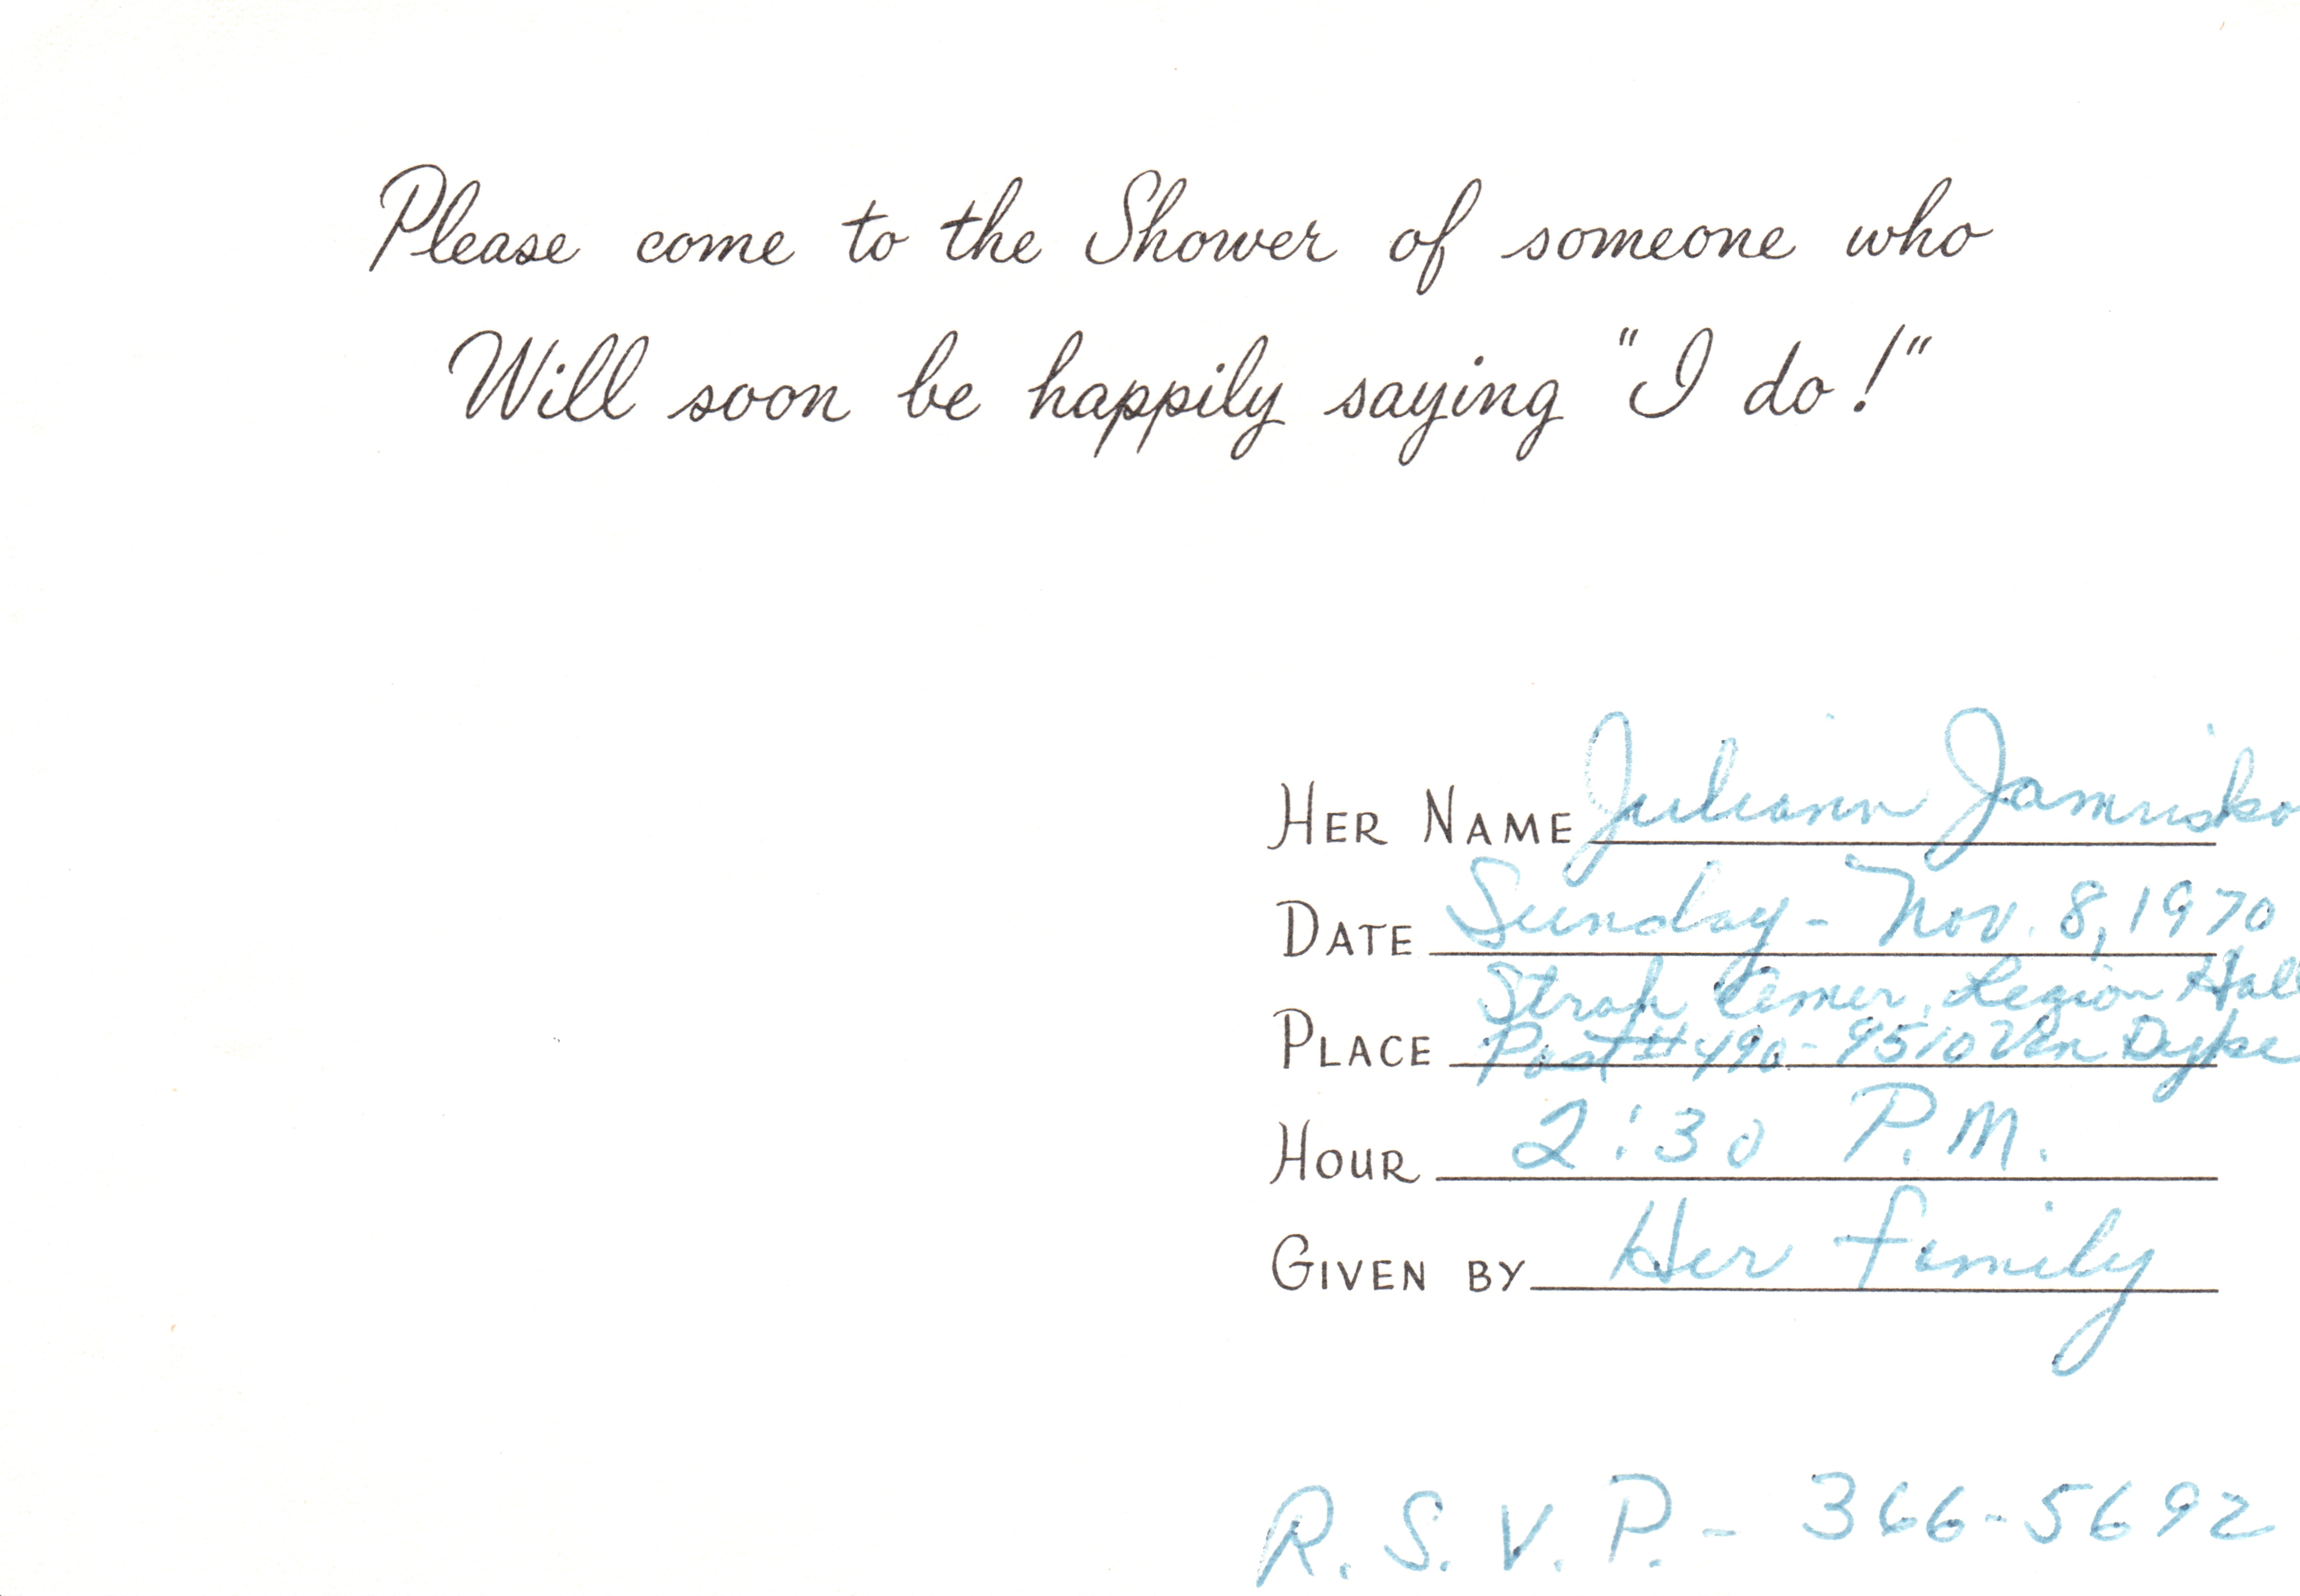 Please come to the Shower of someone who
Will soon be happily saying "I do!"
HER NAME Juliann Jamrisko
DATE Sunday - Nov. 8, 1970
Stroh Legion Hall
PLACE Post # 490 - 9510 Van Dyke
HOUR 2:30 P.M.
GIVEN BY Her family
R.S.V.P. - 366-5692